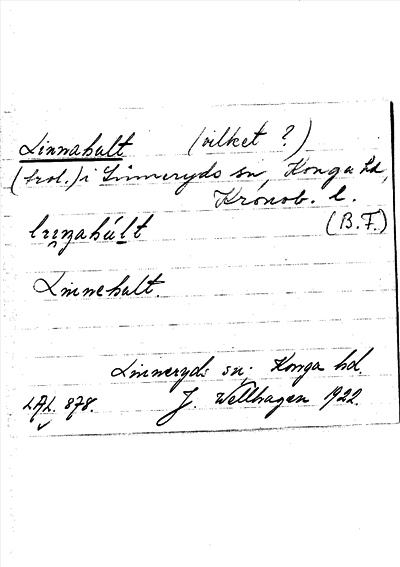 Linnahult (vilket ?)
(trol.) i Linneryds sn, Konga hd,
Kronob. l.
(B.F.)
Linnehult.
Linneryds sn. Konga hd.
LAL. 878. J. Wellhagen 1922.